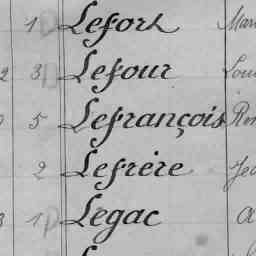 1 Lefort Mar
2 3 Lefour Lou
5 Lefrançois Ren
2 Lefrère Je
3 1 Legac A